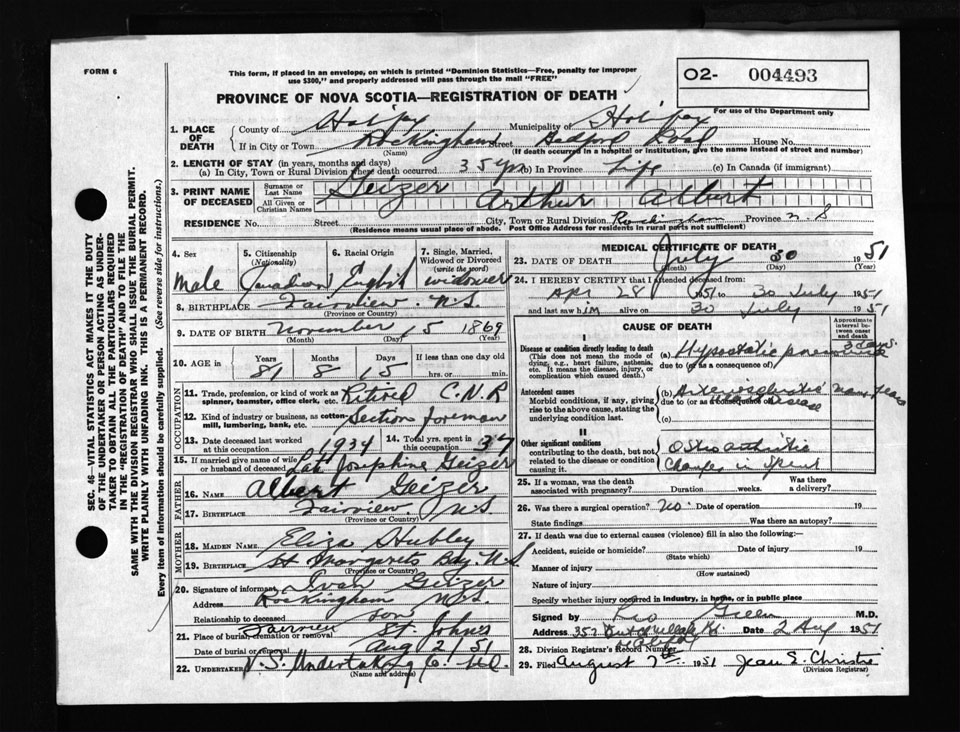 FORM 6
This form, if placed in an envelope, on which is printed "Dominion Statistics—Free, penalty for improper
use $300," and properly addressed will pass through the mail "FREE"
O2- 004493
PROVINCE OF NOVA SCOTIA—REGISTRATION OF DEATH
For use of the Department only
1. PLACE OF DEATH
County of Halifax Municipality of Halifax
If in City or Town Rockingham Street House No.
(Name) (If death occurred in a hospital or institution, give the name instead of street and number)
2. LENGTH OF STAY (in years, months and days)
(a) In City, Town or Rural Division where death occurred. 35 yrs (b) In Province Life (c) In Canada (if immigrant)
3. PRINT NAME OF DECEASED
Surname or Last Name Geizer
All Given or Christian Names Arthur Albert
RESIDENCE No. Street City, Town or Rural Division Rockingham Province N.S
(Residence means usual place of abode. Post Office Address for residents in rural parts not sufficient)
4. Sex 5. Citizenship (Nationality) 6. Racial Origin 7. Single, Married, Widowed or Divorced (write the word)
Male Canadian English widower
8. BIRTHPLACE Fairview N.S.
(Province or Country)
9. DATE OF BIRTH November 15 1869
(Month) (Day) (Year)
10. AGE in Years Months Days If less than one day old
81 8 15 hrs. or min.
OCCUPATION
11. Trade, profession, or kind of work as spinner, teamster, office clerk, etc. Retired C.N.R
12. Kind of industry or business, as cotton-mill, lumbering, bank, etc. Section foreman
13. Date deceased last worked at this occupation 1934 14. Total yrs. spent in occupation 37
15. If married give name of wife or husband of deceased Late Josephine Geizer
FATHER
16. NAME Albert Geizer
17. BIRTHPLACE Fairview N.S.
(Province or Country)
MOTHER
18. MAIDEN NAME Eliza Hubley
19. BIRTHPLACE St Margarets Bay. N.S.
(Province or Country)
20. Signature of informant Ivan Geizer
Address Rockingham N.S.
Relationship to deceased son
21. Place of burial, cremation or removal Fairview St. Johns
Date of burial or removal Aug 2/51
22. UNDERTAKER N.S. Undertaking Co. Ltd.
(Name and address)
MEDICAL CERTIFICATE OF DEATH
23. DATE OF DEATH July 30 1951
(Month) (Day) (Year)
24. I HEREBY CERTIFY that I attended deceased from
Apr 28 1951 to 30 July 1951
and last saw him alive on 30 July 1951
CAUSE OF DEATH
Approximate interval between onset and death
I
Disease or condition directly leading to death
(This does not mean the mode of dying, e.g., heart failure, asthenia, etc. It means the disease, injury, or complication which caused death.)
(a) Hypostatic pneumonia 3 days.
due to (or as a consequence of)
Antecedent causes
Morbid conditions, if any, giving rise to the above cause, stating the underlying condition last.
(b) Arteriosclerotic Disease many years
due to (or as a consequence of)
(c)
II
Other significant conditions
contributing to the death, but not related to the disease or condition causing it.
Osteoarthritic
Changes in
25. If a woman, was the death associated with pregnancy? Duration weeks. Was there a delivery?
26. Was there a surgical operation? no. Date of operation 19
State findings Was there an autopsy?
27. If death was due to external causes (violence) fill in also the following:—
Accident, suicide or homicide? Date of injury 19
(State which)
Manner of injury
(How sustained)
Nature of injury
Specify whether injury occurred in industry, in home, or in public place
Signed by Leo Green M.D.
Address 357 Date 2 Aug 1951
28. Division Registrar's Record Number
29. Filed August 7th 1951 Jean E. Christie
(Division Registrar)
SEC. 46—VITAL STATISTICS ACT MAKES IT THE DUTY
OF THE UNDERTAKER OR PERSON ACTING AS UNDER-
TAKER TO OBTAIN ALL THE PARTICULARS REQUIRED
IN THE "REGISTRATION OF DEATH" AND TO FILE THE
SAME WITH THE DIVISION REGISTRAR WHO SHALL ISSUE THE BURIAL PERMIT.
WRITE PLAINLY WITH UNFADING INK. THIS IS A PERMANENT RECORD.
Every item of information should be carefully supplied. (See reverse side for instructions.)